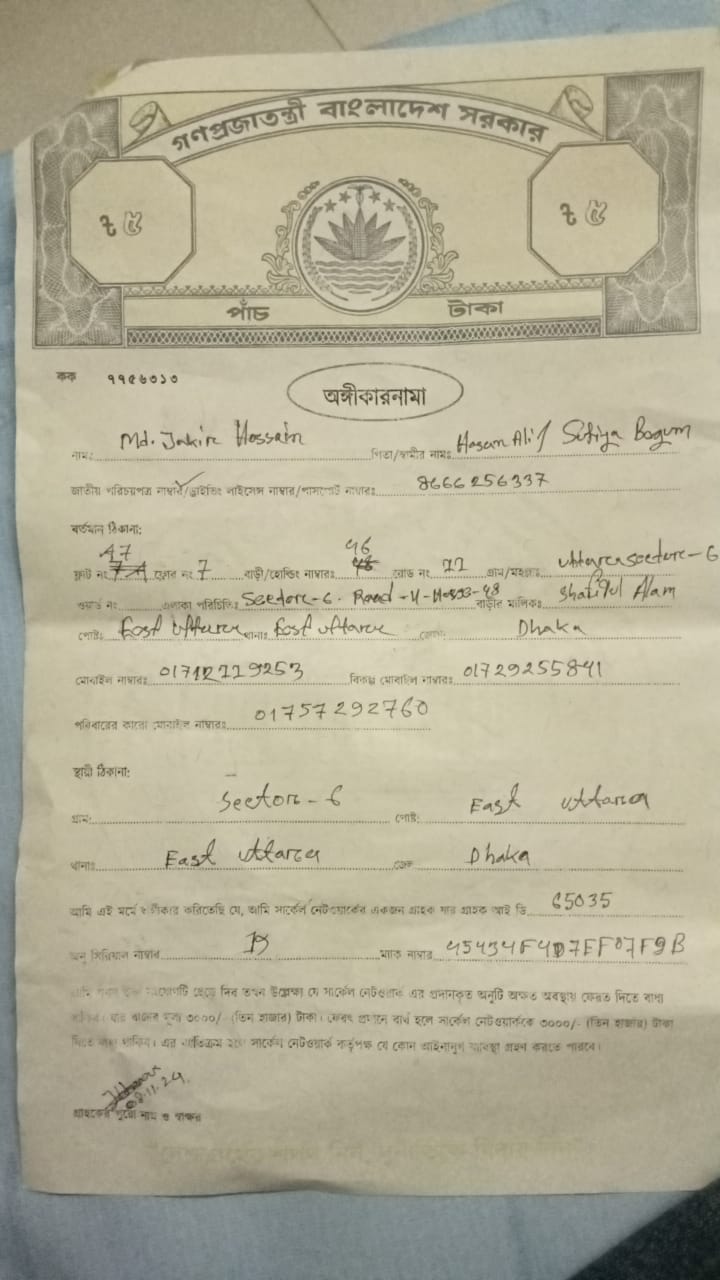 গণপ্রজাতন্ত্রী বাংলাদেশ সরকার
৳ ৫ ৳ ৫
পাঁচ টাকা
কক ৭৭৫৬৩১৩
অঙ্গীকারনামা
নাম: Md. Jakir Hossain পিতা/স্বামীর নামঃ Hasan Ali / Sufiya Begum
জাতীয় পরিচয়পত্র নাম্বার/ড্রাইভিং লাইসেন্স নাম্বার/পাসপোর্ট নাম্বারঃ 8666256337
বর্তমান ঠিকানা:
ফ্লাট নং A7 ফ্লোর নং 7 বাড়ী/হোল্ডিং নাম্বারঃ 46 রোড নং 11 গ্রাম/মহল্লাঃ Uttara Sectore-6
ওয়ার্ড নং এলাকা পরিচিতিঃ Sectore-6. Road-11-House-48 বাড়ীর মালিকঃ Shafiqul Alam
পোষ্টঃ East Uttara থানাঃ East Uttara Dhaka
মোবাইল নাম্বারঃ 01712119253 বিকল্প মোবাইল নাম্বারঃ 01729255841
পরিবারের কারো মোবাইল নাম্বারঃ 01757292760
স্থায়ী ঠিকানা:
গ্রাম: Sector-6 পোষ্ট: East Uttara
থানাঃ East Uttara Dhaka
আমি এই মর্মে স্বীকার করিতেছি যে, আমি সার্কেল নেটওয়ার্কের একজন গ্রাহক যার গ্রাহক আই ডি 65035
অনু সিরিয়াল নাম্বার ম্যাক নাম্বার 45434F4D7EF07F9B
আমি যখন সংযোগটি ছেড়ে দিব তখন উল্লেক্ষ্য যে সার্কেল নেটওয়ার্ক এর প্রদানকৃত অনুটি অক্ষত অবস্থায় ফেরত দিতে বাধ্য
যার বাজার মূল্য ৩০০০/- (তিন হাজার) টাকা। ফেরৎ প্রদানে ব্যর্থ হলে সার্কেল নেটওয়ার্ককে ৩০০০/- (তিন হাজার) টাকা
দিতে বাধ্য থাকিব। এর ব্যতিক্রম হলে সার্কেল নেটওয়ার্ক কর্তৃপক্ষ যে কোন আইনানুগ ব্যবস্থা গ্রহণ করতে পারবে।
.11.24.
গ্রাহকের পুরো নাম ও স্বাক্ষর